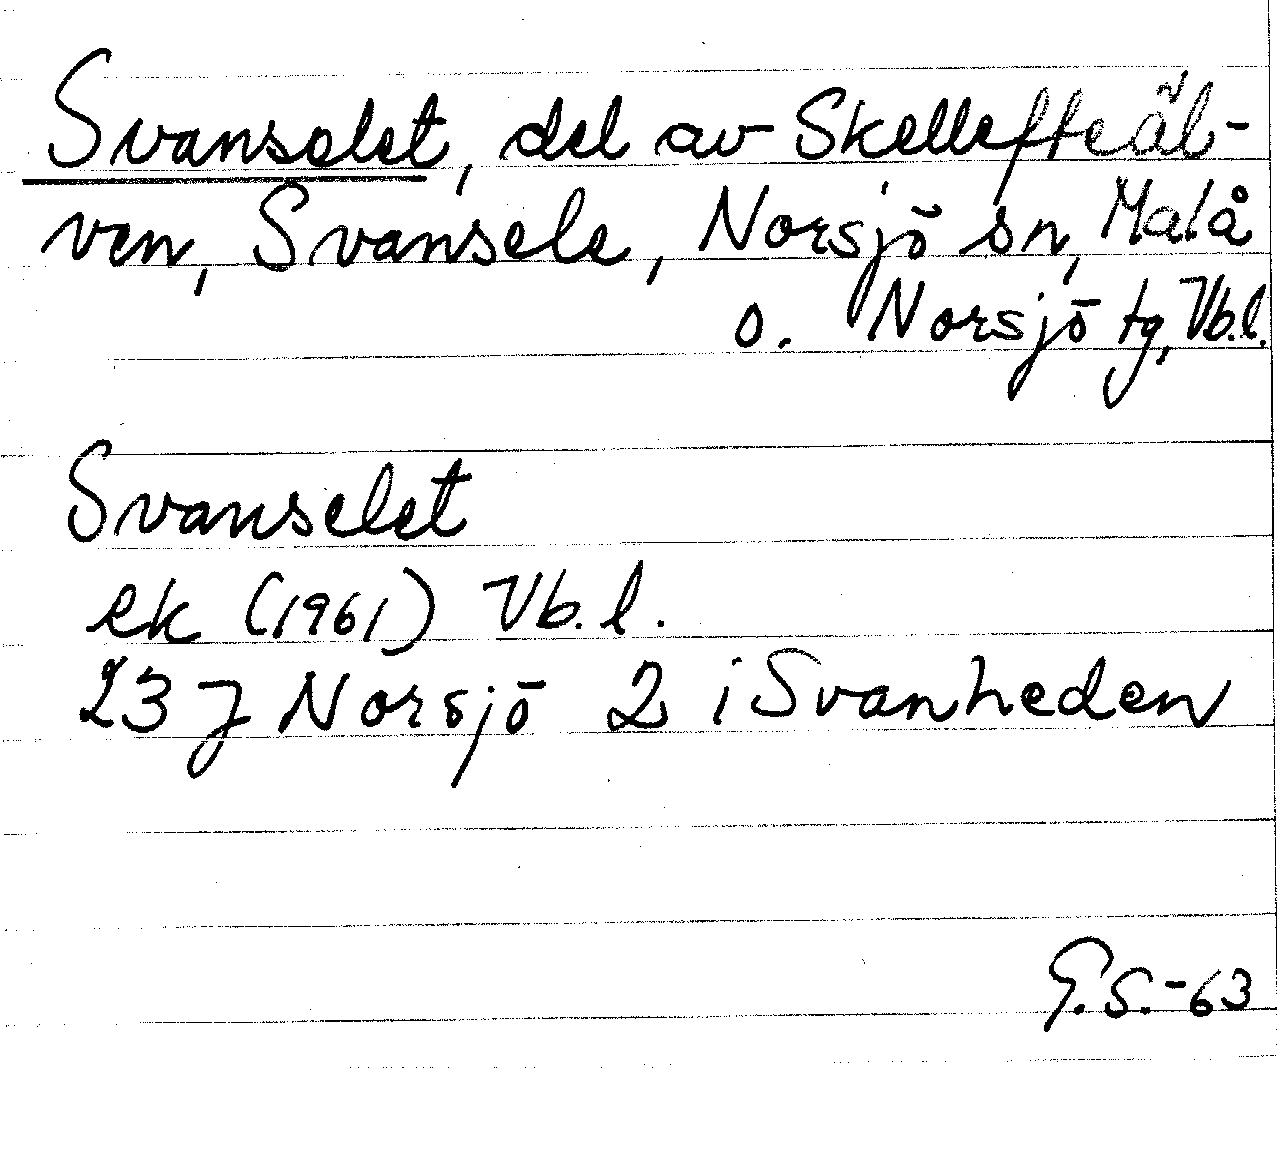 Svanselet, del av Skellefteäl-
ven, Svansele, Norsjö sn, Malå
o. Norsjö tg, Vb.l.
Svanselet
ek (1961) Vb.l.
23 J Norsjö 2 i Svanheden
G.S.-63